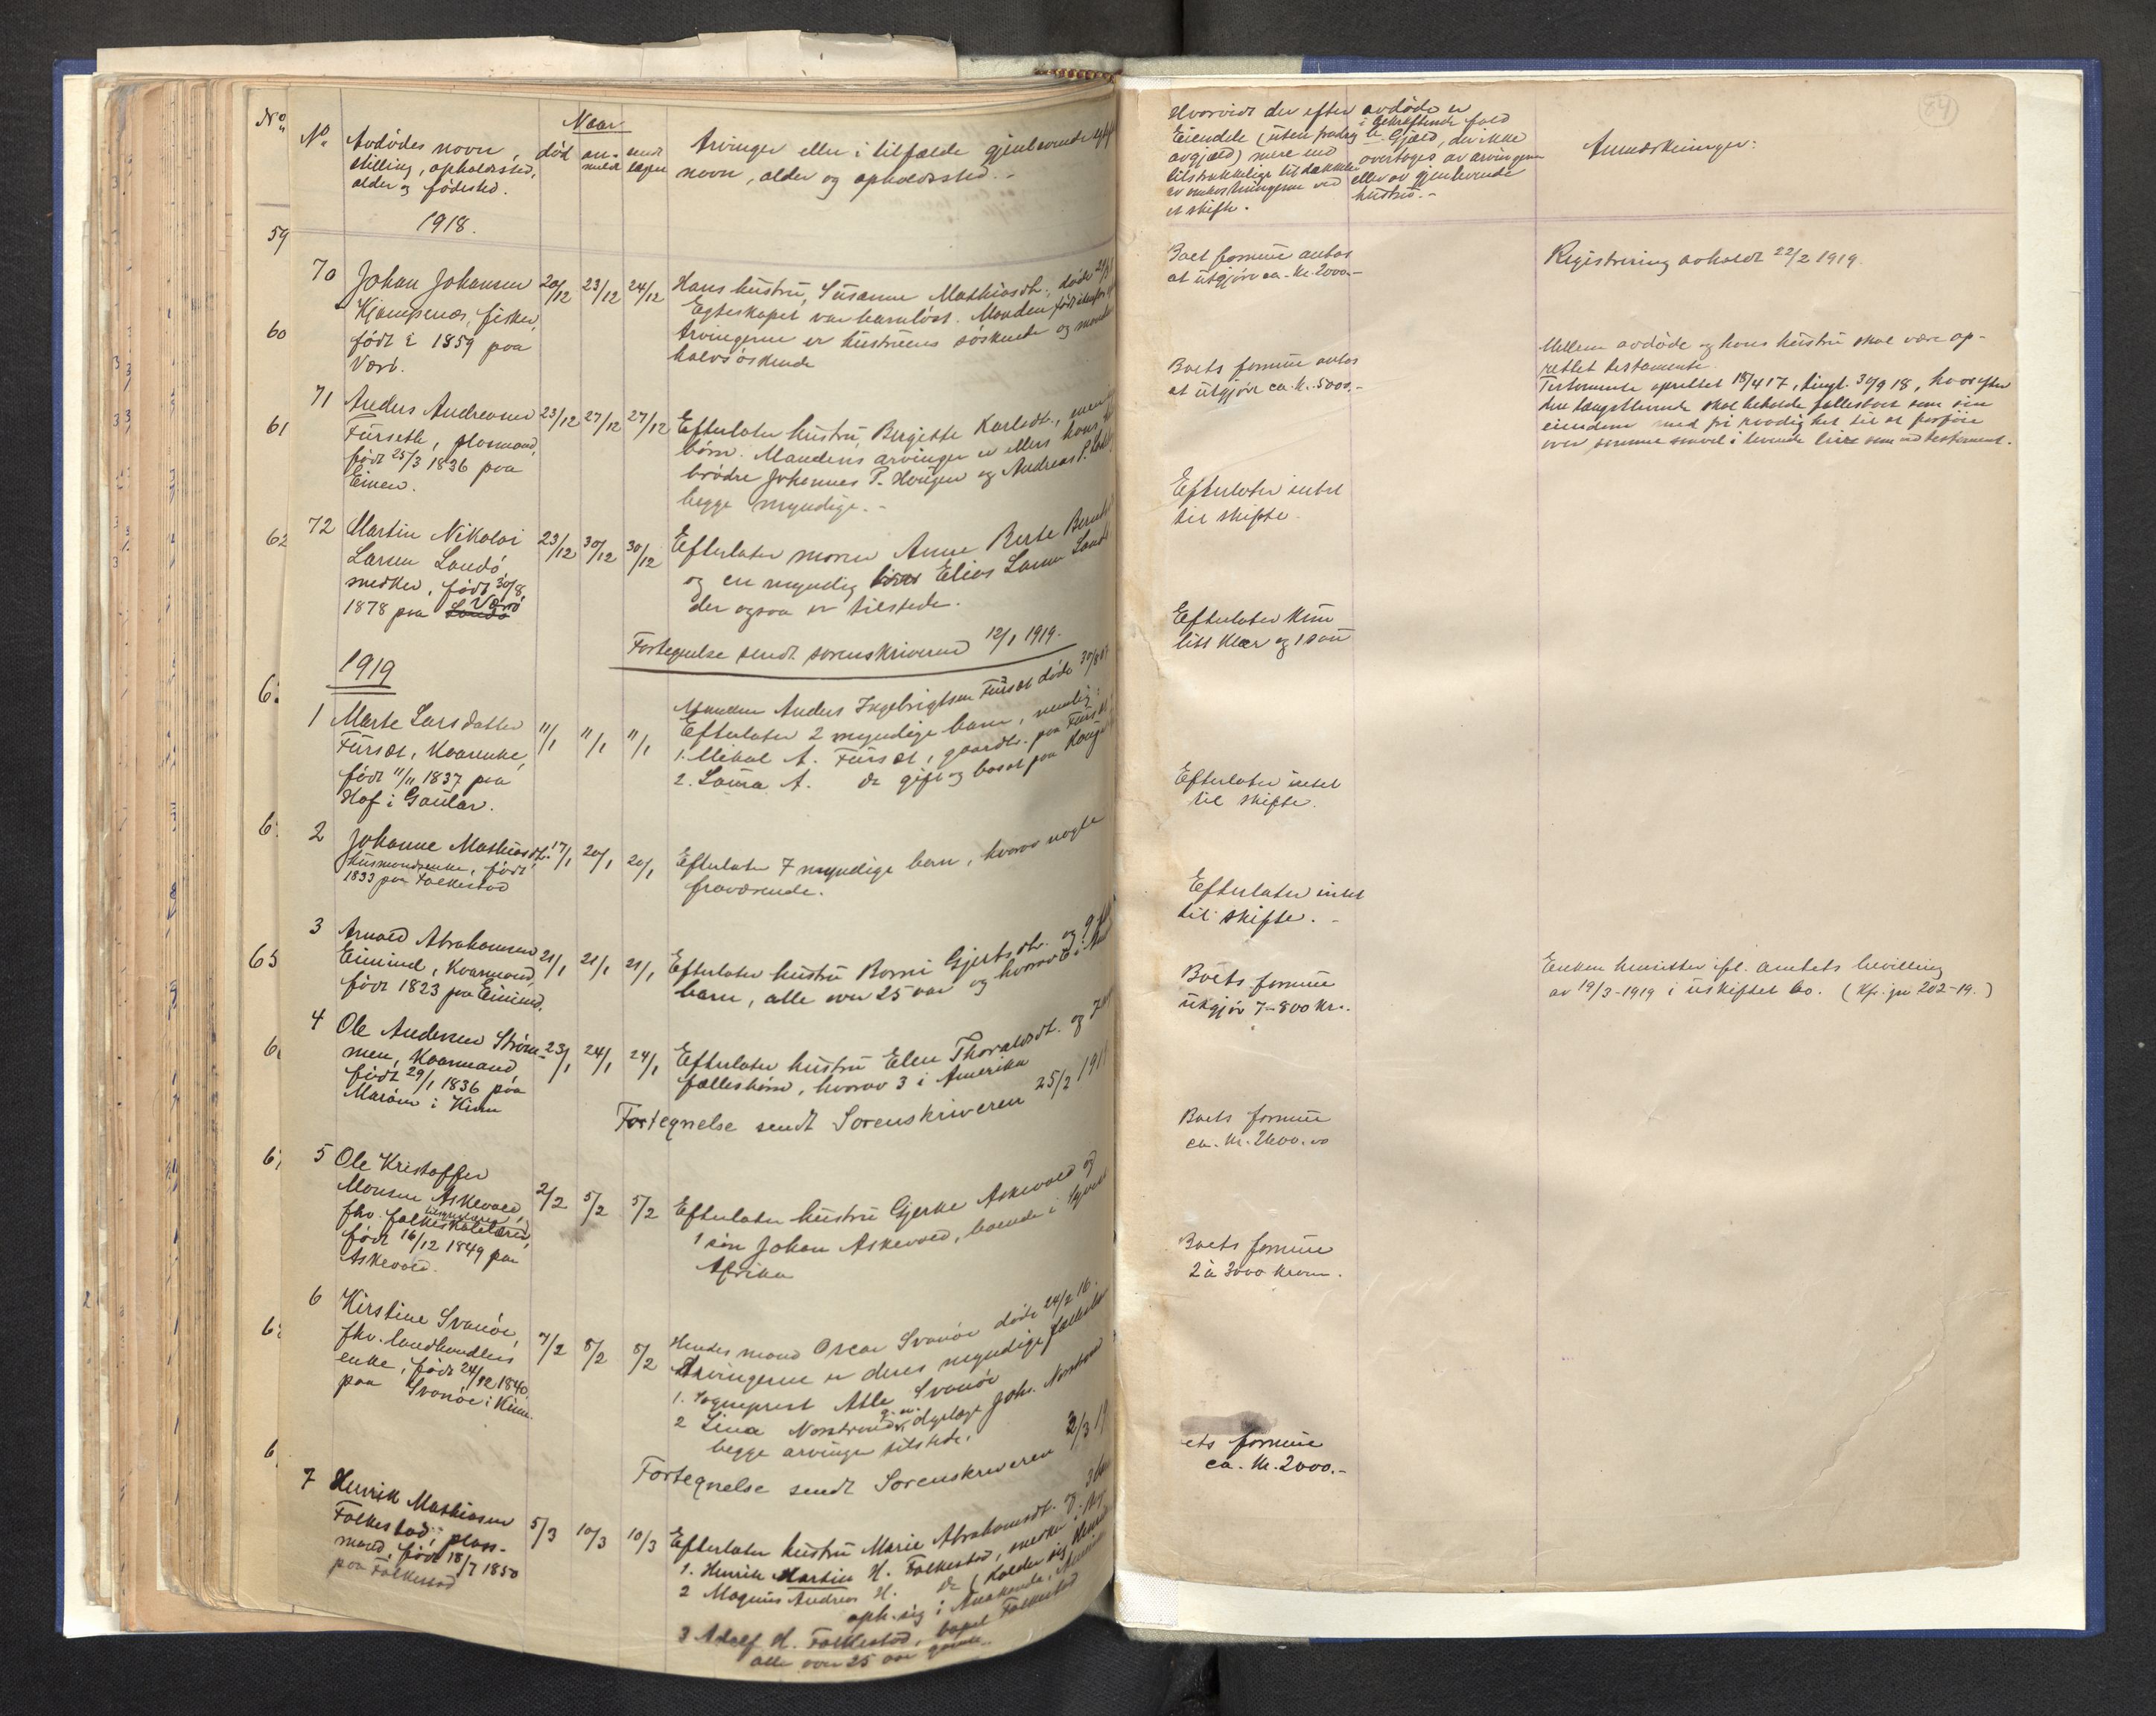 No
No
Avdødes navn
stilling, opholdssted,
alder og fødested.
Naar
død
an-
meld
sendt
Arvinger eller i tilfælde gjenlevende
navn, alder og opholdssted. -
1918.
59
70
Johan Johansen
Kjempenes, fisker,
født i 1859 paa
Værö.
20/12 23/12 24/12
Hans hustru, Susanne Mathiasdt., døde
Egteskapet var barnløst. Manden født
Arvingerne er hustruens søskende og
halvsøskende
60
71
Anders Andreasen
Furseth, plasmand,
født 25/3 1836 paa
Eimen.
23/12 27/12 27/12
Efterlater hustru Birgitte Karlsdt., men
børn. Mandens arvinger er ellers hans
brødre Johannes P. Haugen og Andreas P.
begge myndige. -
61
72
Martin Nikolai
Larsen Landö,
snedker, født 30/8
1878 paa Landö Værö
23/12 30/12 30/12
Efterlater moren Anne Berte
og en myndig bror Elias Larsen
der ogsaa er tilstede.
62
Fortegnelse sendt sorenskriveren 12/1 1919.
1919
1
Marte Larsdatter
Furset, Kaarenke,
født 11/11 1837 paa
Hof i Gaular.
11/1 11/1 11/1
Manden Anders Ingebrigtsen Furset døde 30/8
Efterlater 2 myndige barn, nemlig:
1. Mikal A. Furset, gaardbr. paa
2. Laura A. do gift og bosat paa
2
Johanne Mathiasdt.
husmandsenke, født
1833 paa Folkestad
17/1 20/1 20/1
Efterlater 7 myndige barn, hvorav nogle
fraværende.
3
Arnold Abrahamsen
Eimind, Kaarmand,
født 1823 paa Eimind.
21/1 21/1 21/1
Efterlater hustru Borni Gjertsdtr. og 9
barn, alle over 25 aar og hvorav
65
4
Ole Andersen Strøm-
men, Kaarmand,
født 29/1 1836 paa
i Kinn
23/1 24/1 24/1
Efterlater hustru Elen Thoraldsdt. og 7
fællesbørn, hvorav 3 i Amerika
Fortegnelse sendt Sorenskriveren 25/2 191
5
Ole Kristoffer
Monsen Askevold,
fhv. folkeskolelærer,
født 16/12 1849 paa
Askevold.
2/2 5/2 5/2
Efterlater hustru Gjerke Askevold og
1 søn Johan Askevold, boende i
Afrika
6
Kirstine Svanöe,
fhv. landhandlers
enke, født 24/12 1840
paa Svanöe i Kinn.
7/2 8/2 8/2
Hendes mand Oscar Svanöe døde 24/2 16.
Arvingerne er deres myndige
1. Sogneprest Atle Svanöe
2 Lina Nordstrand, g.m. dyrlæge Johs. Nordstrand
begge arvinger tilstede.
Fortegnelse sendt Sorenskriveren 3/3 19
7
Henrik Mathiasen
Folkestad, plass-
mand, født 18/7 1850
paa Folkestad
5/3 10/3 10/3
Efterlater hustru Marie Abrahamsdt. og 3
1. Henrik Martin H. Folkestad, snedker i
2 Magnus Andreas H. do (kalder sig
oph. sig i
3 Adolf H. Folkestad, bopæl Folkestad
alle over 25 aar gamle.
Hvorvidt der efter avdøde er
Eiendele (uten fradrag
av gjæld) mere end
tilstrækkelige til dækkelse
av omkostningerne ved
et skifte.
i bekræftende fald
Gjæld, der ikke
overtages av arvingerne
eller av gjenlevende
hustru. -
Anmerkninger:
84
Boet formue antas
at utgjøre ca. Kr. 2000. -
Registrering avholdt 22/2 1919.
Boets formue antas
at utgjøre ca. Kr. 5000. -
Mellem avdøde og hans hustru skal være op-
rettet testamente.
Testamente oprettet 18/4 17, tingl. 30/9 18, hvorefter
den længstlevende skal beholde fællesboet som sin
eiendom med fri raadighet til at forføie
over samme saavel i levende live som ved testament.
Efterlater intet
til skifte.
Efterlater kun
litt klær og 1 sau
Efterlater intet
til skifte.
Efterlater intet
til skifte. -
Boets formue
utgjør 7-800 Kr..
Enken hensitter ifl. amtets bevilling
av 19/3-1919 i uskiftet bo. (Kfr. jnr 202-19.)
Boets formue
ca. Kr. 2600.00
Boets formue
2 à 3000 kroner.
ets formue
ca. Kr. 2000. -